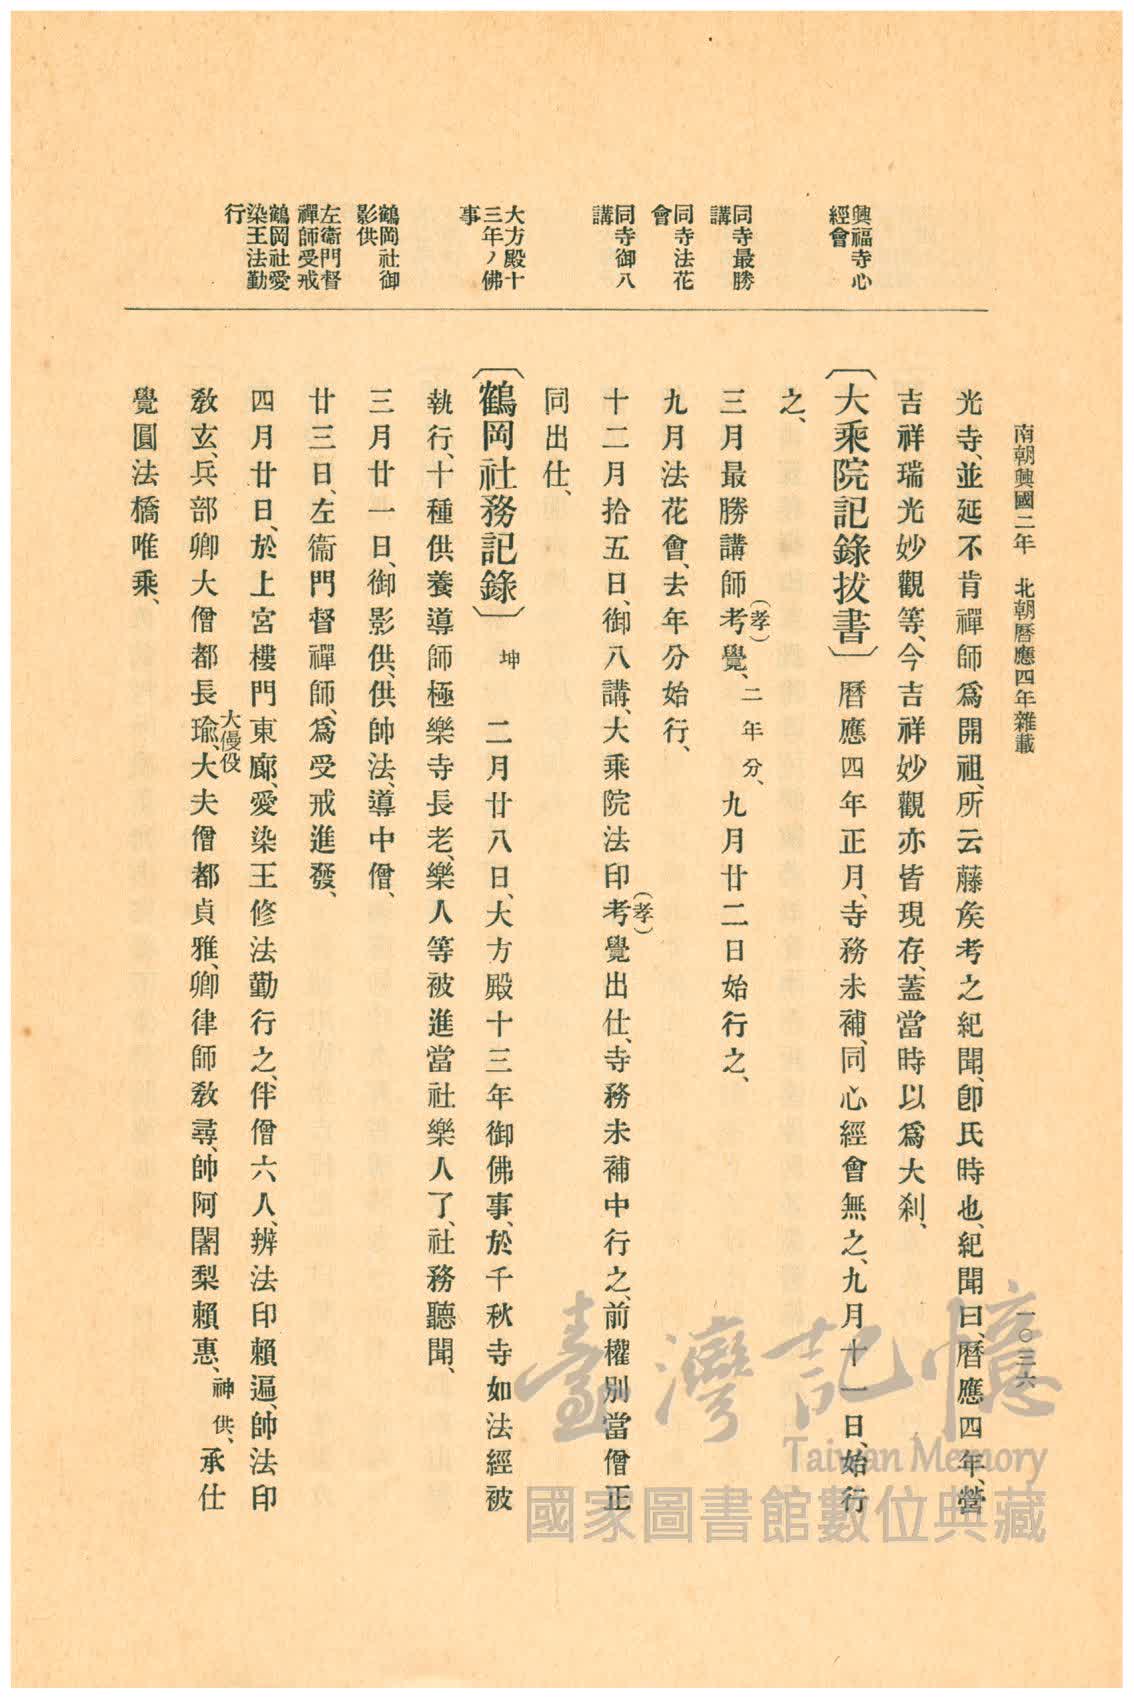 南朝興國二年　北朝曆應四年雜載
一〇三六
興福寺心
經會
同寺最勝
講
同寺法花
會
同寺御八
講
大方殿十
三年ノ佛
事
鶴岡社御
影供
左衞門督
禪師受戒
鶴岡社愛
染王法勤
行
光寺、並延不肯禪師爲開祖、所云藤矦考之紀聞、卽氏時也、紀聞曰、曆應四年、營
吉祥瑞光妙觀等、今吉祥妙觀亦皆現存、蓋當時以爲大刹、
〔大乘院記錄拔書〕曆應四年正月、寺務未補、同心經會無之、九月十一日、始行
之、
三月最勝講師考(孝)覺、二年分、九月廿二日始行之、
九月法花會、去年分始行、
十二月拾五日、御八講、大乘院法印考(孝)覺出仕、寺務未補中行之、前權別當僧正
同出仕、
〔鶴岡社務記錄〕坤　二月廿八日、大方殿十三年御佛事、於千秋寺如法經被
執行、十種供養導師極樂寺長老、樂人等被進當社樂人了、社務聽聞、
三月廿一日、御影供、供、帥法、導中僧、
廿三日、左衞門督禪師、爲受戒進發、
四月廿日、於上宮樓門東廊、愛染王修法勤行之、伴僧六人、辨法印賴遍、帥法印
敎玄、兵部卿大僧都長瑜、大僈伇大夫僧都貞雅、卿律師敎尋、帥阿闍梨賴惠、神供、承仕
覺圓法橋唯乘、
臺灣記憶
Taiwan Memory
國家圖書館數位典藏